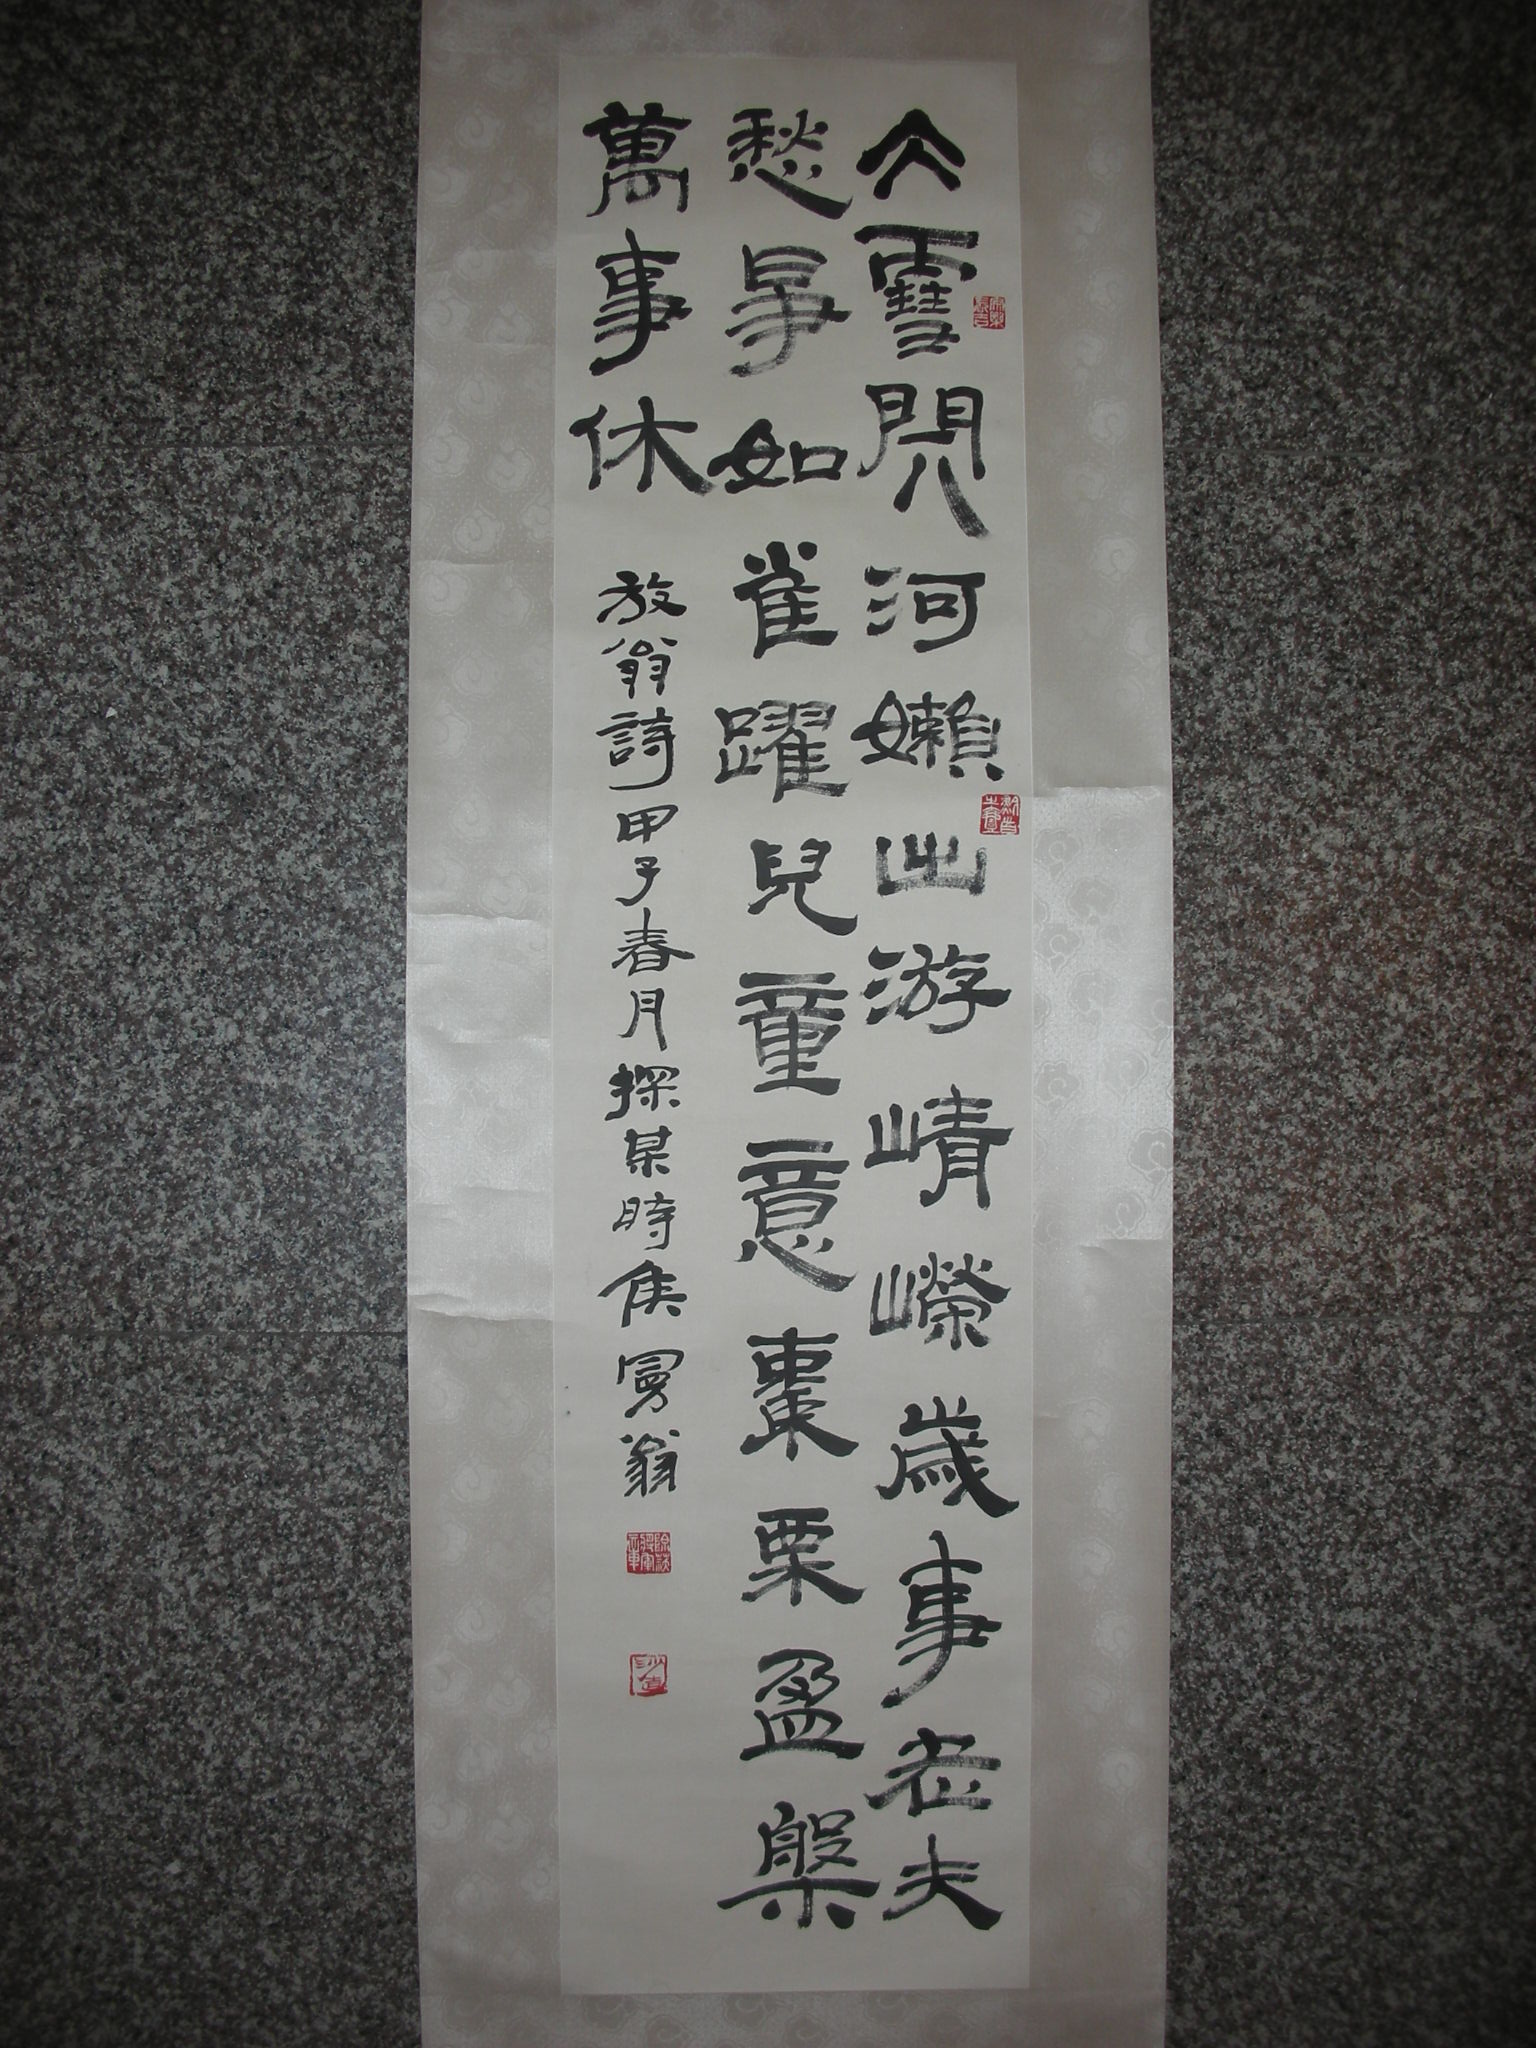 大雪關河嬾出游崝嶸歲事老夫
愁爭如雀躍兒童意棗栗盈槃
萬事休 放翁詩甲子春月探某時矦翁